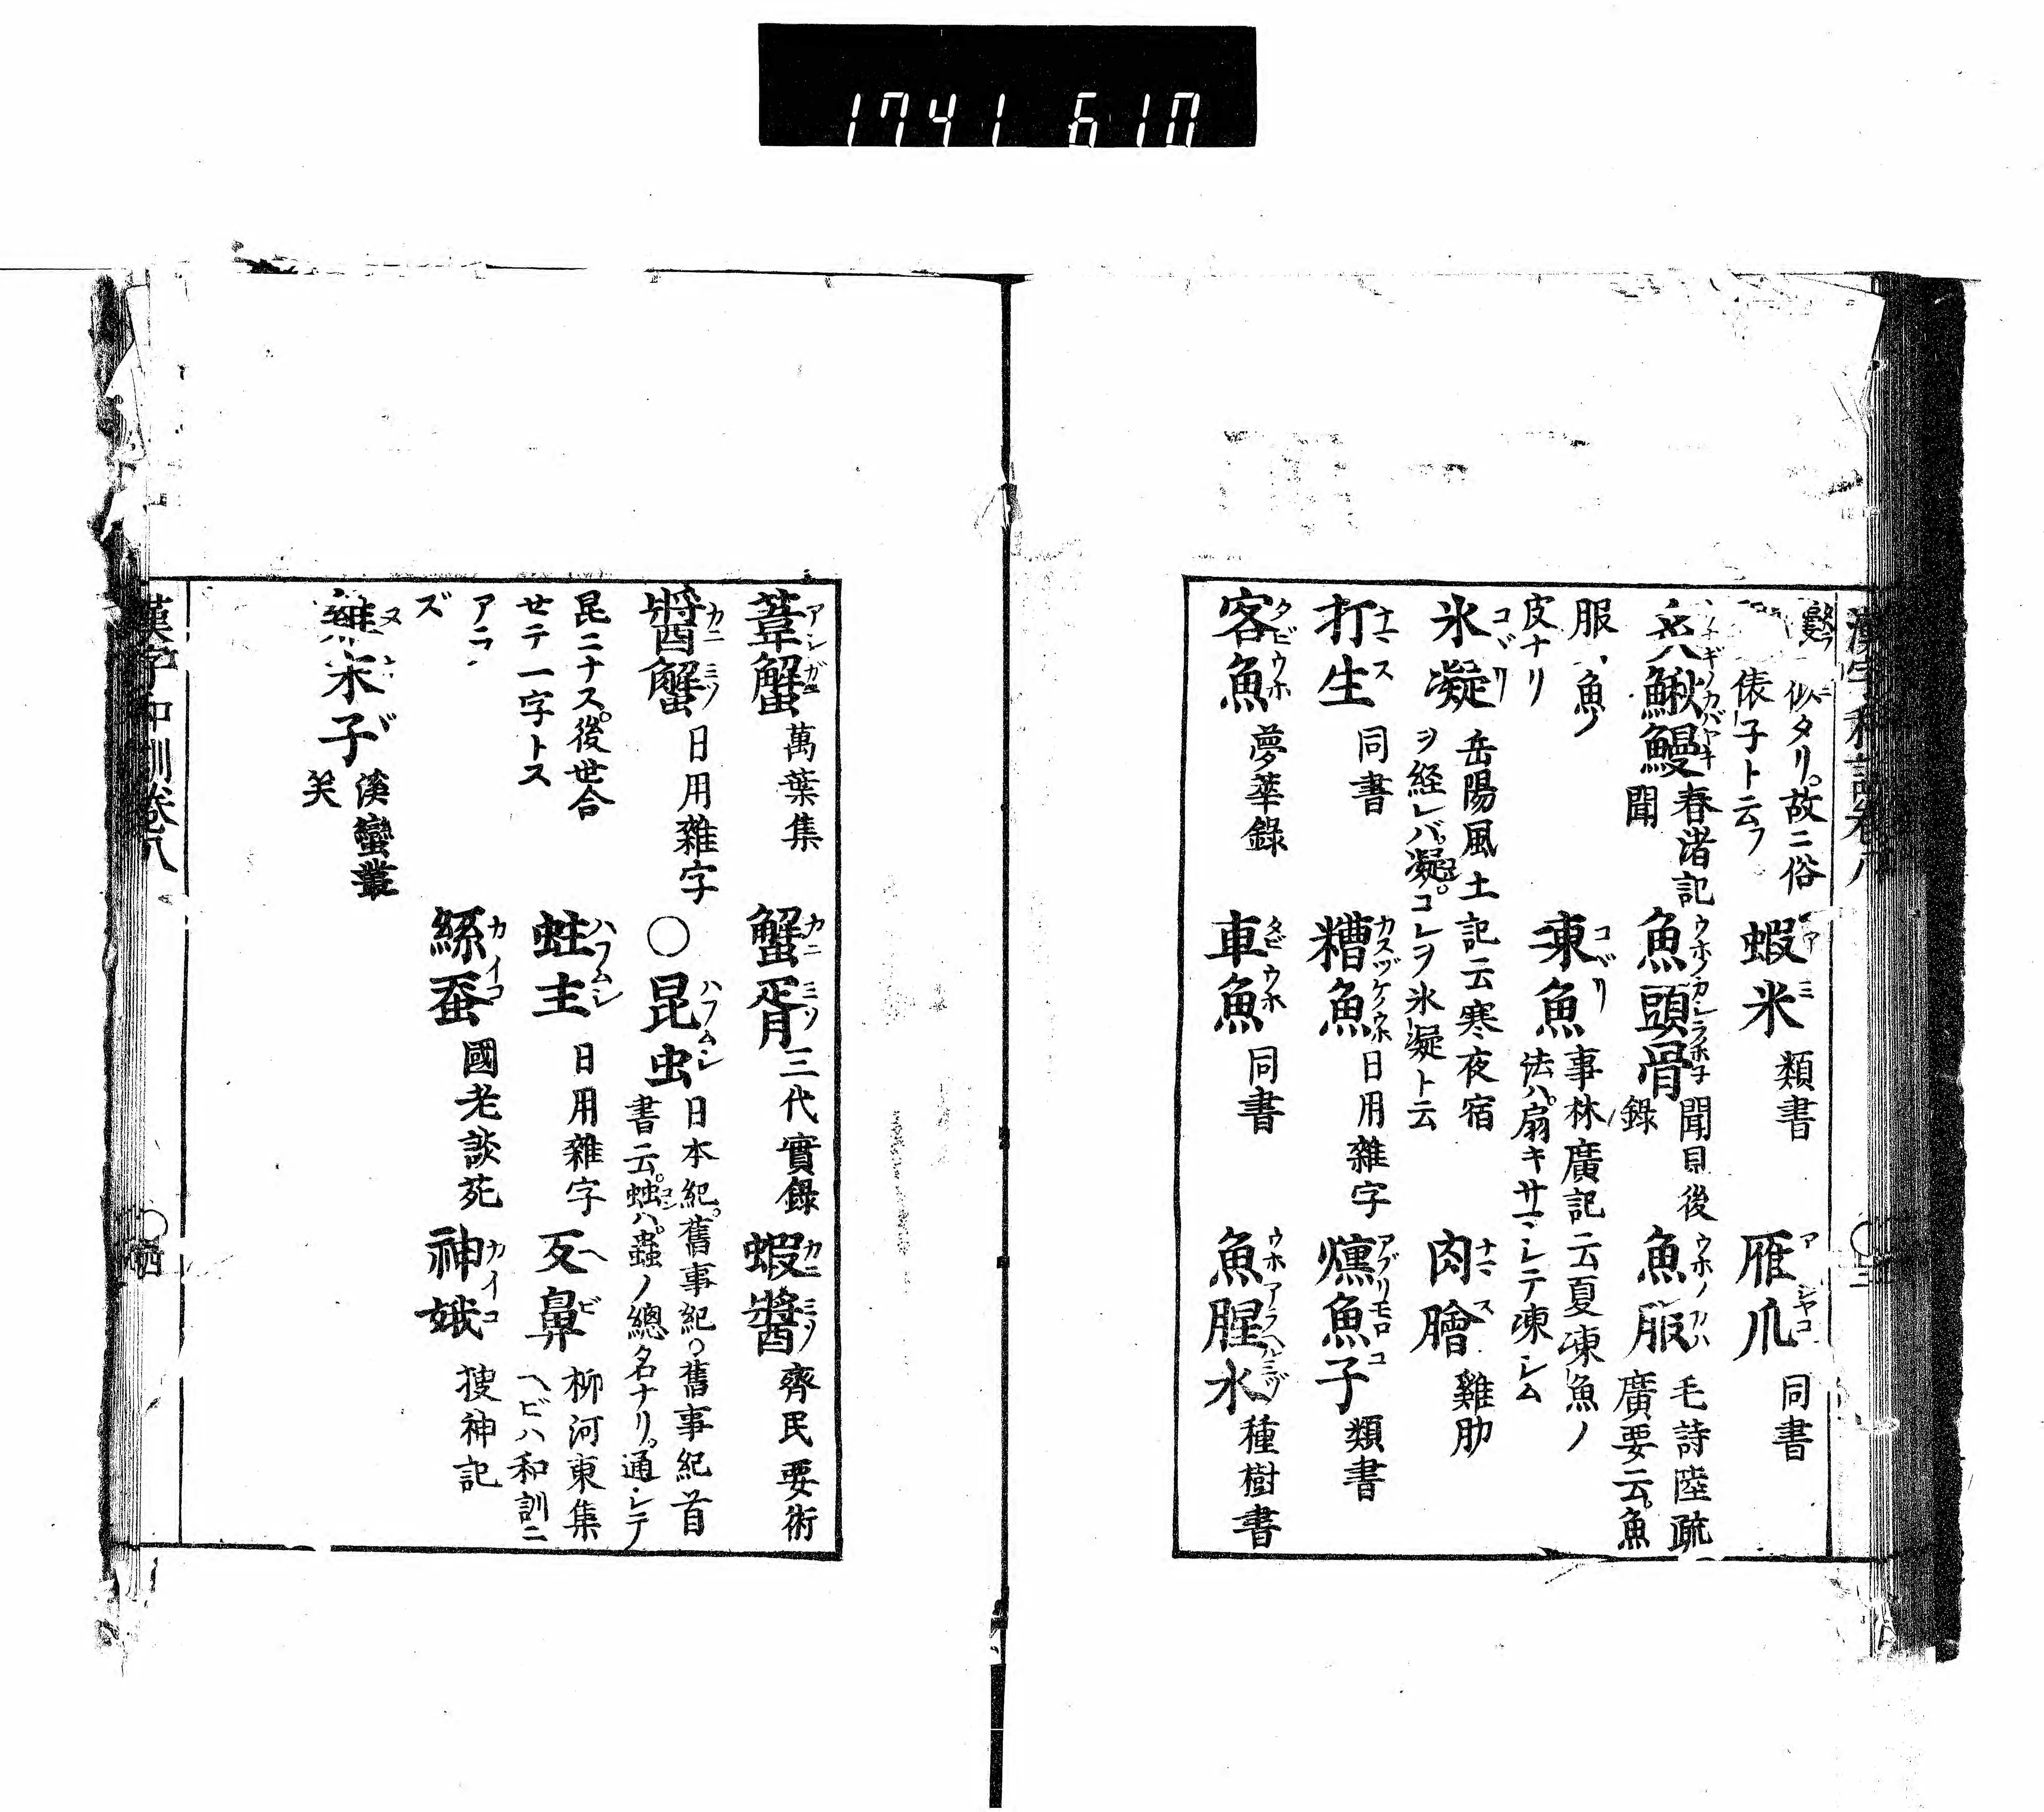 1741 610
似タリ。故ニ俗
俵子ト云フ
蝦米 類書
雁爪 同書
鰍鰻 春渚記
聞
魚頭骨 聞見後
錄
魚服 毛詩陸疏
廣要云。魚
服、魚ノ
皮ナリ
凍魚 事林廣記云夏凍魚ノ
法ハ。扇キサマシテ凍シム
肉膾 雞肋
氷凝 岳陽風土記云寒夜宿
ヲ経レバ。凝。コレヲ氷凝ト云
打生 同書
糟魚 日用雜字
燻魚子 類書
客魚 夢華錄
車魚 同書
魚腥水 種樹書
葦蟹 萬葉集
蟹胥 三代實錄
蝦醬 齊民要術
醬蟹 日用雜字
〇昆虫 日本紀。舊事紀。〇舊事紀首
書云。䖵ハ。蟲ノ總名ナリ。通シテ
昆ニナス。後世合
せテ一字トス
蛀主 日用雜字
反鼻 柳河東集
ヘビハ和訓ニ
アラ
ズ
絲蚕 國老談苑
神娥 搜神記
溪蠻叢
笑
漢字和訓卷八